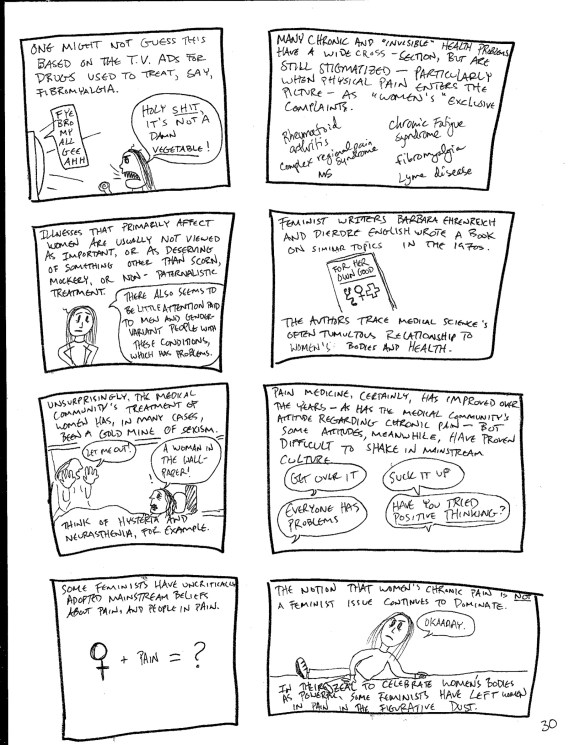 ONE MIGHT NOT GUESS THIS
BASED ON THE T.V. ADS FOR
DRUGS USED TO TREAT, SAY,
FIBROMYALGIA.
FYE
BRO
MY
ALL
GEE
AHH
HOLY SHIT,
IT'S NOT A
DAMN
VEGETABLE!
MANY CHRONIC AND "INVISIBLE" HEALTH PROBLEMS
HAVE A WIDE CROSS-SECTION, BUT ARE
STILL STIGMATIZED — PARTICULARLY
WHEN PHYSICAL PAIN ENTERS THE
PICTURE — AS "WOMEN'S" EXCLUSIVE
COMPLAINTS.
Rheumatoid
arthritis
Chronic Fatigue
Syndrome
complex regional pain
syndrome
fibromyalgia
MS
Lyme disease
ILLNESSES THAT PRIMARILY AFFECT
WOMEN ARE USUALLY NOT VIEWED
AS IMPORTANT, OR AS DESERVING
OF SOMETHING OTHER THAN SCORN,
MOCKERY, OR NON-PATERNALISTIC
TREATMENT.
THERE ALSO SEEMS TO
BE LITTLE ATTENTION PAID
TO MEN AND GENDER-
VARIANT PEOPLE WITH
THESE CONDITIONS,
WHICH HAS PROBLEMS.
FEMINIST WRITERS BARBARA EHRENREICH
AND DIERDRE ENGLISH WROTE A BOOK
ON SIMILAR TOPICS IN THE 1970s.
FOR HER
OWN GOOD
THE AUTHORS TRACE MEDICAL SCIENCE'S
OFTEN TUMULTOUS RELATIONSHIP TO
WOMEN'S BODIES AND HEALTH.
UNSURPRISINGLY, THE MEDICAL
COMMUNITY'S TREATMENT OF
WOMEN HAS, IN MANY CASES,
BEEN A GOLD MINE OF SEXISM.
LET ME OUT!
A WOMAN IN
THE WALL-
PAPER!
THINK OF HYSTERIA AND
NEURASTHENIA, FOR EXAMPLE.
PAIN MEDICINE, CERTAINLY, HAS IMPROVED OVER
THE YEARS — AS HAS THE MEDICAL COMMUNITY'S
ATTITUDE REGARDING CHRONIC PAIN — BUT
SOME ATTITUDES, MEANWHILE, HAVE PROVEN
DIFFICULT TO SHAKE IN MAINSTREAM
CULTURE.
GET OVER IT
SUCK IT UP
EVERYONE HAS
PROBLEMS
HAVE YOU TRIED
POSITIVE THINKING?
SOME FEMINISTS HAVE UNCRITICALLY
ADOPTED MAINSTREAM BELIEFS
ABOUT PAIN, AND PEOPLE IN PAIN.
♀ + PAIN = ?
THE NOTION THAT WOMEN'S CHRONIC PAIN IS NOT
A FEMINIST ISSUE CONTINUES TO DOMINATE.
OKAAAAY.
IN THEIR ZEAL TO CELEBRATE WOMEN'S BODIES
AS POWERFUL, SOME FEMINISTS HAVE LEFT WOMEN
IN PAIN IN THE FIGURATIVE DUST.
30